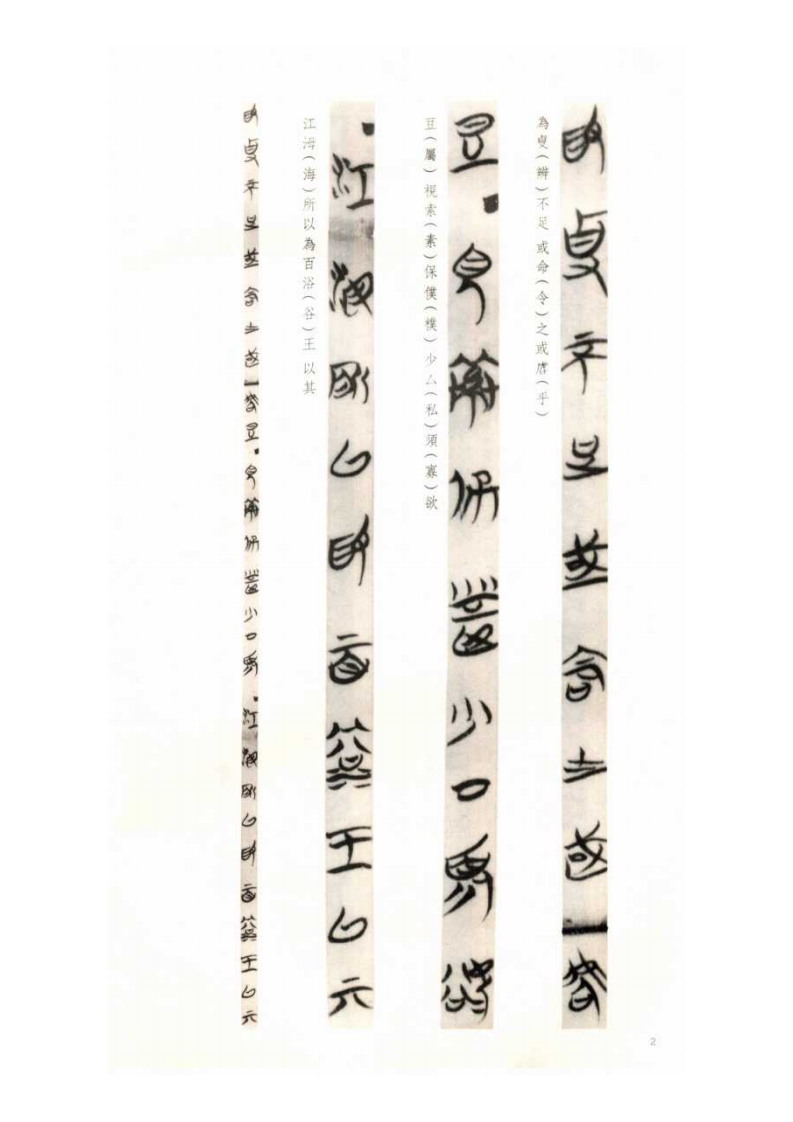 為叟(辨)不足 或命(令)之或唐(乎)
豆(屬) 視索(素)保僕(樸)少厶(私)須(寡)欲
江海(海)所以為百浴(谷)王 以其
2